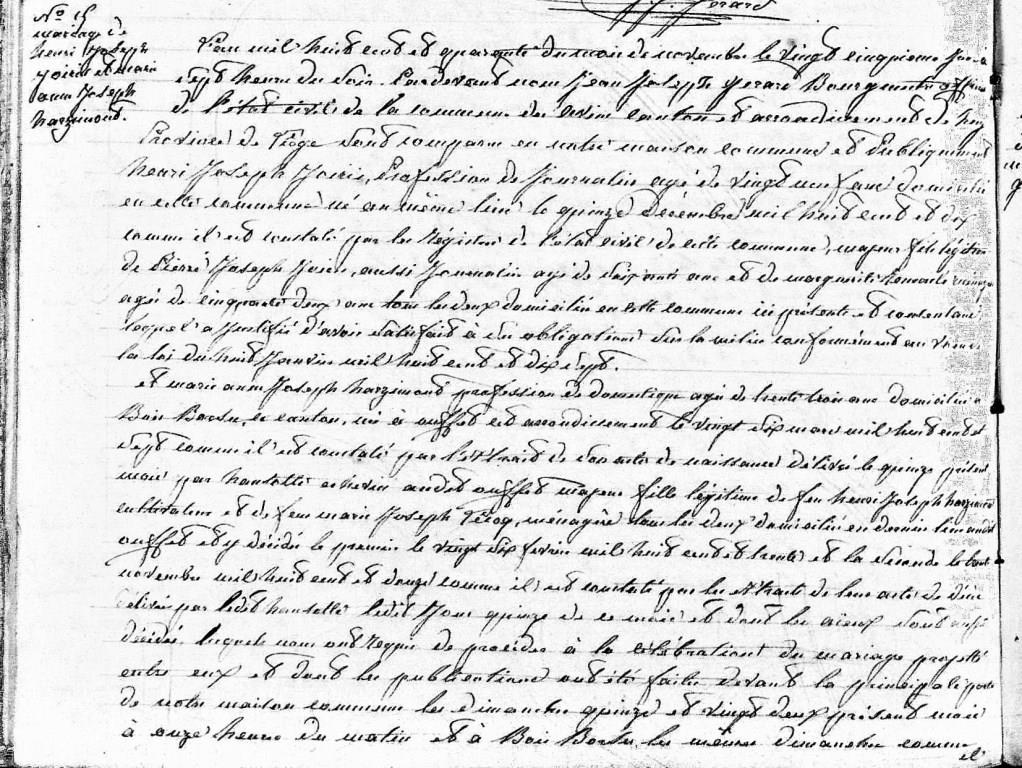 No 15
mariage de
henri Joseph
Joiris et marie
anne Joseph
harzimont.
L'an mil huit cent et quarante du mois de novembre le vingt cinquieme jour à
sept heure du soir. Pardevant nous jean Joseph gerard Bourgmestre officier
de l'état civil de la commune de canton et arrondissement de huy
Province de Liège sont comparu en notre maison commune et Publiquement
henri Joseph Joiris, Profession de Journalier agé de vingt neuf ans domicilié
en cette commune né au même lieu le quinze decembre mil huit cent et dix
comme il est constaté par les Régistres de l'état civil de cette commune, majeur fils légitime
de Pierre Joseph Joiris, aussi Journalier agé de soixante ans et de marguerite
agée de cinquante deux ans tous les deux domiciliés en cette commune ici présents et consentant
lequel a justifié d'avoir satisfait à ses obligations sur la milice conformement au vœu de
la loi du huit Janvier mil huit cent et dix sept.
et marie anne Joseph harzimont profession de domestique agée de trente trois ans domiciliée à
Bois Borsu, ce canton, née à ouffet cet arrondissement le vingt six mars mil huit cent et
sept comme il est constaté par l'extrait de son acte de naissance délivré le quinze présent
mois par hansotte echevin audit ouffet majeure fille légitime de feu henri Joseph harzimont
cultivateur et de feue marie Joseph ménagère tous les deux domiciliés en dernier lieu audit
ouffet et y décédés le premier le vingt six fevrier mil huit cent et trente et la seconde le
novembre mil huit cent et douze comme il est constaté par les extraits de leur acte de décès
délivrés par ledit hansotte ledit Jour quinze de ce mois et dont les aieux sont aussi
décédés. lesquels nous ont requis de procéder à la célébration du mariage projetté
entre eux et dont les publications ont été faites devant la principale porte
de notre maison commune les dimanches quinze et vingt deux présent mois
à onze heures du matin et à Bois Borsu les mêmes dimanches comme
il